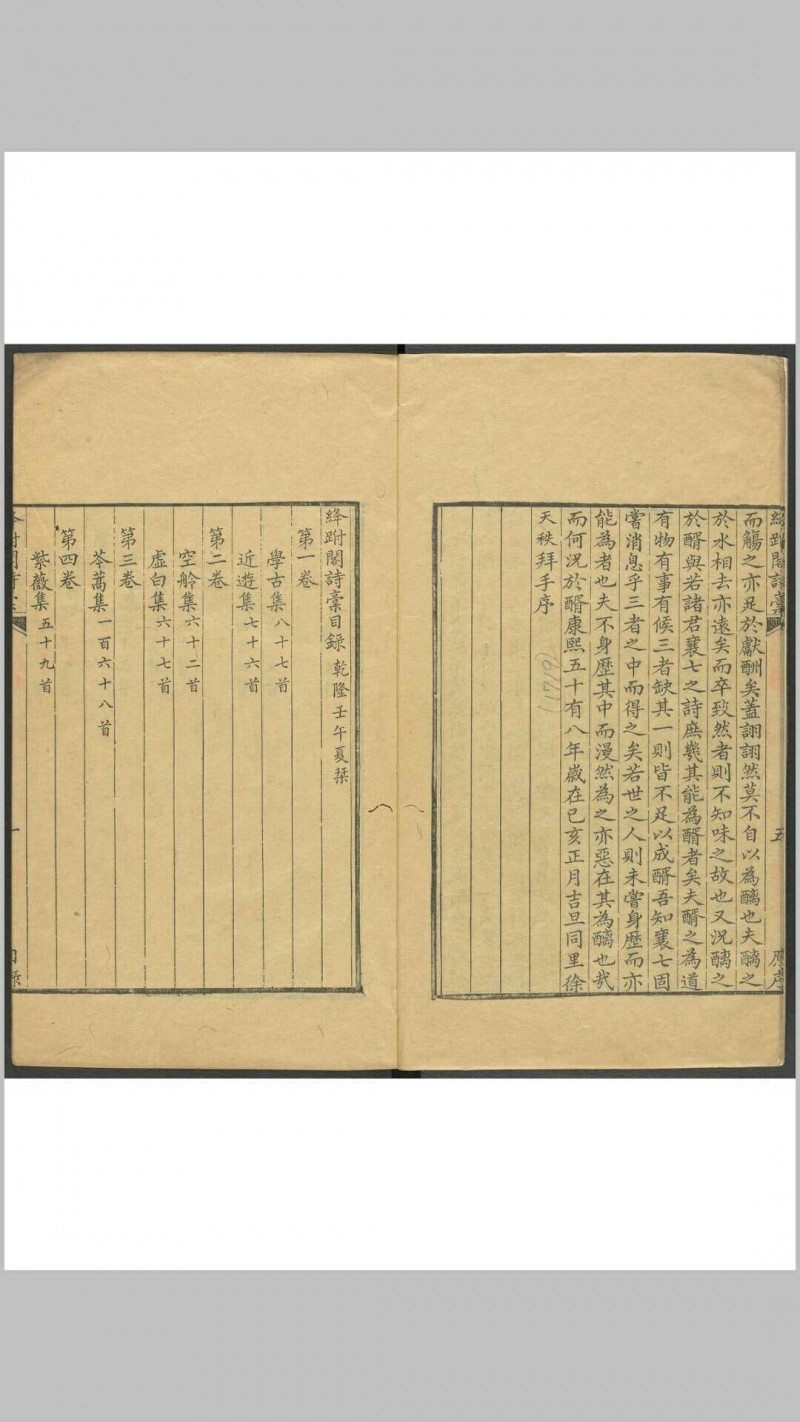 絳跗閣詩藁
五
原序
而觴之亦足於獻酬矣蓋詡詡然莫不自以為醨也夫醨之
於水相去亦遠矣而卒致然者則不知味之故也又況醨之
於醑與若諸君襄七之詩庶幾其能為醑者矣夫醑之為道
有物有事有候三者缺其一則皆不足以成醑吾知襄七固
嘗消息乎三者之中而得之矣若世之人則未嘗身歷而亦
能為者也夫不身歷其中而漫然為之亦惡在其為醨也哉
而何況於醑康熙五十有八年歲在己亥正月吉旦同里徐
天秩拜手序
絳跗閣詩藁目録 乾隆壬午夏栞
第一卷
學古集八十七首
近遊集七十六首
第二卷
空舲集六十二首
虛白集六十七首
第三卷
苓蒿集一百六十八首
第四卷
紫薇集五十九首
一